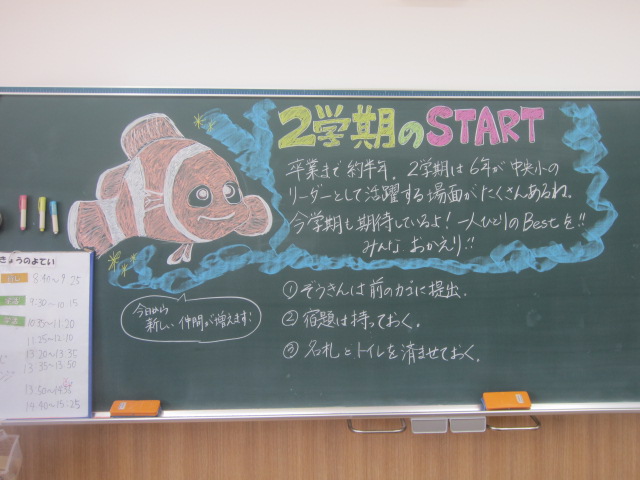 2学期のSTART
卒業まで約半年。2学期は6年が中央小の
リーダーとして活躍する場面がたくさんあるね。
今学期も期待しているよ！一人ひとりのBestを!!
みんなおかえり!!
今日から
新しい仲間が増えます!
①ぞうきんは前のカゴに提出.
②宿題は持っておく.
③名札とトイレを済ませておく.
きょうのよてい
8:40～9:25
9:30～10:15
10:35～11:20
11:25～12:10
13:20～13:35
13:35～13:50
13:50～14:35
14:40～15:25